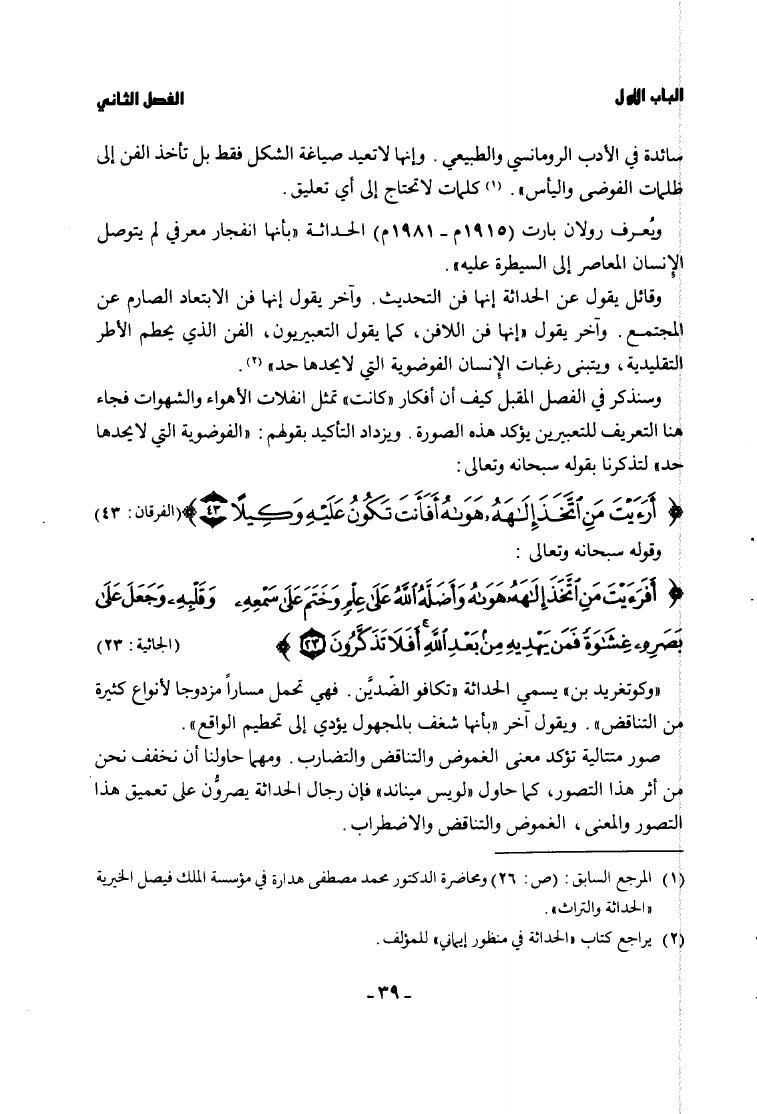 الباب الأول
الفصل الثاني
سائدة في الأدب الرومانسي والطبيعي . وإنها لاتعيد صياغة الشكل فقط بل تأخذ الفن إلى
ظلمات الفوضى واليأس» . (١) كلمات لاتحتاج إلى أي تعليق .
ويُعرف رولان بارت (١٩١٥م ـ ١٩٨١م) الحداثة «بأنها انفجار معرفي لم يتوصل
الإنسان المعاصر إلى السيطرة عليه» .
وقائل يقول عن الحداثة إنها فن التحديث . وآخر يقول إنها فن الابتعاد الصارم عن
المجتمع . وآخر يقول «إنها فن اللافن ، كما يقول التعبيريون ، الفن الذي يحطم الأطر
التقليدية ، ويتبنى رغبات الإنسان الفوضوية التي لايحدها حد» (٢) .
وسنذكر في الفصل المقبل كيف أن أفكار «كانت» تمثل انفلات الأهواء والشهوات فجاء
هنا التعريف للتعبيرين يؤكد هذه الصورة . ويزداد التأكيد بقولهم : «الفوضوية التي لايحدها
حد» لتذكرنا بقوله سبحانه وتعالى :
﴿ أَرَءَيْتَ مَنِ ٱتَّخَذَ إِلَٰهَهُۥ هَوَىٰهُ أَفَأَنتَ تَكُونُ عَلَيْهِ وَكِيلًا ٤٣ ﴾ (الفرقان : ٤٣)
وقوله سبحانه وتعالى :
﴿ أَفَرَءَيْتَ مَنِ ٱتَّخَذَ إِلَٰهَهُۥ هَوَىٰهُ وَأَضَلَّهُ ٱللَّهُ عَلَىٰ عِلْمٍ وَخَتَمَ عَلَىٰ سَمْعِهِۦ وَقَلْبِهِۦ وَجَعَلَ عَلَىٰ
بَصَرِهِۦ غِشَٰوَةً فَمَن يَهْدِيهِ مِنۢ بَعْدِ ٱللَّهِ أَفَلَا تَذَكَّرُونَ ٢٣ ﴾ (الجاثية : ٢٣)
«وكوتغريد بن» يسمي الحداثة «تكافو الضديّن . فهي تحمل مساراً مزدوجا لأنواع كثيرة
من التناقض» . ويقول آخر «بأنها شغف بالمجهول يؤدي إلى تحطيم الواقع» .
صور متتالية تؤكد معنى الغموض والتناقض والتضارب . ومهما حاولنا أن نخفف نحن
من أثر هذا التصور ، كما حاول «لويس ميناند» فإن رجال الحداثة يصرُّون على تعميق هذا
التصور والمعنى ، الغموض والتناقض والاضطراب .
(١) المرجع السابق : (ص : ٢٦) ومحاضرة الدكتور محمد مصطفى هدارة في مؤسسة الملك فيصل الخيرية
«الحداثة والتراث» .
(٢) يراجع كتاب «الحداثة في منظور إيماني» للمؤلف .
ـ ٣٩ ـ